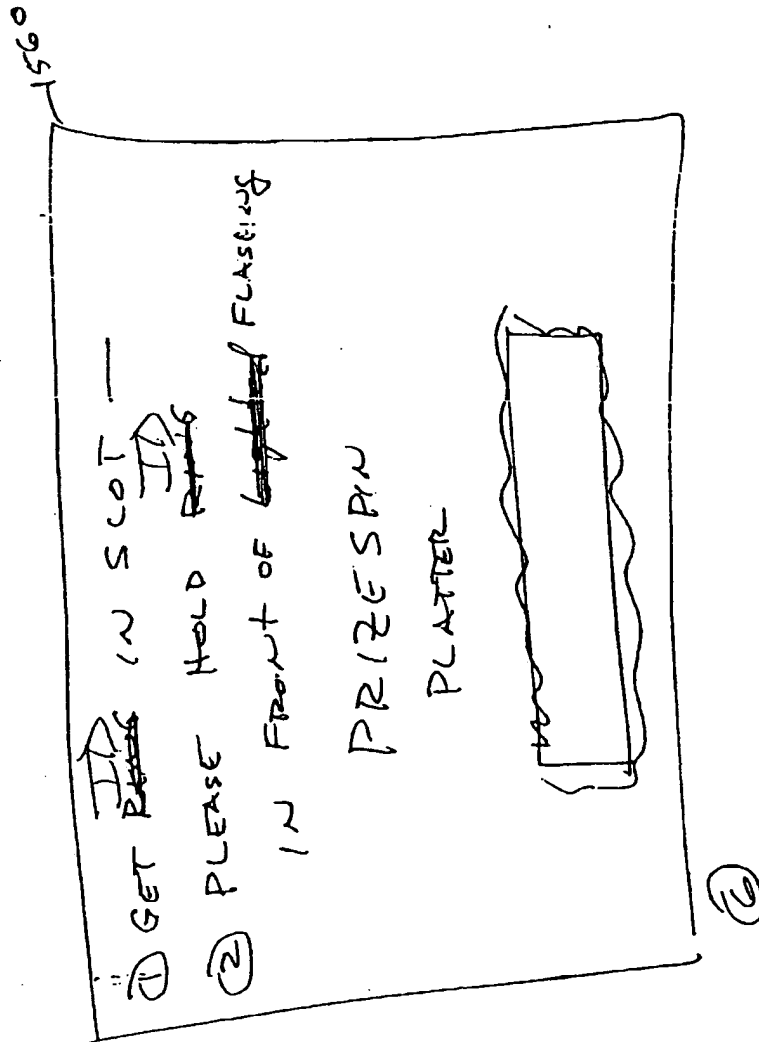 1560
① GET ID IN SLOT —
② PLEASE HOLD ID
IN FRONT OF FLASHING
PRIZE SPIN
PLATTER